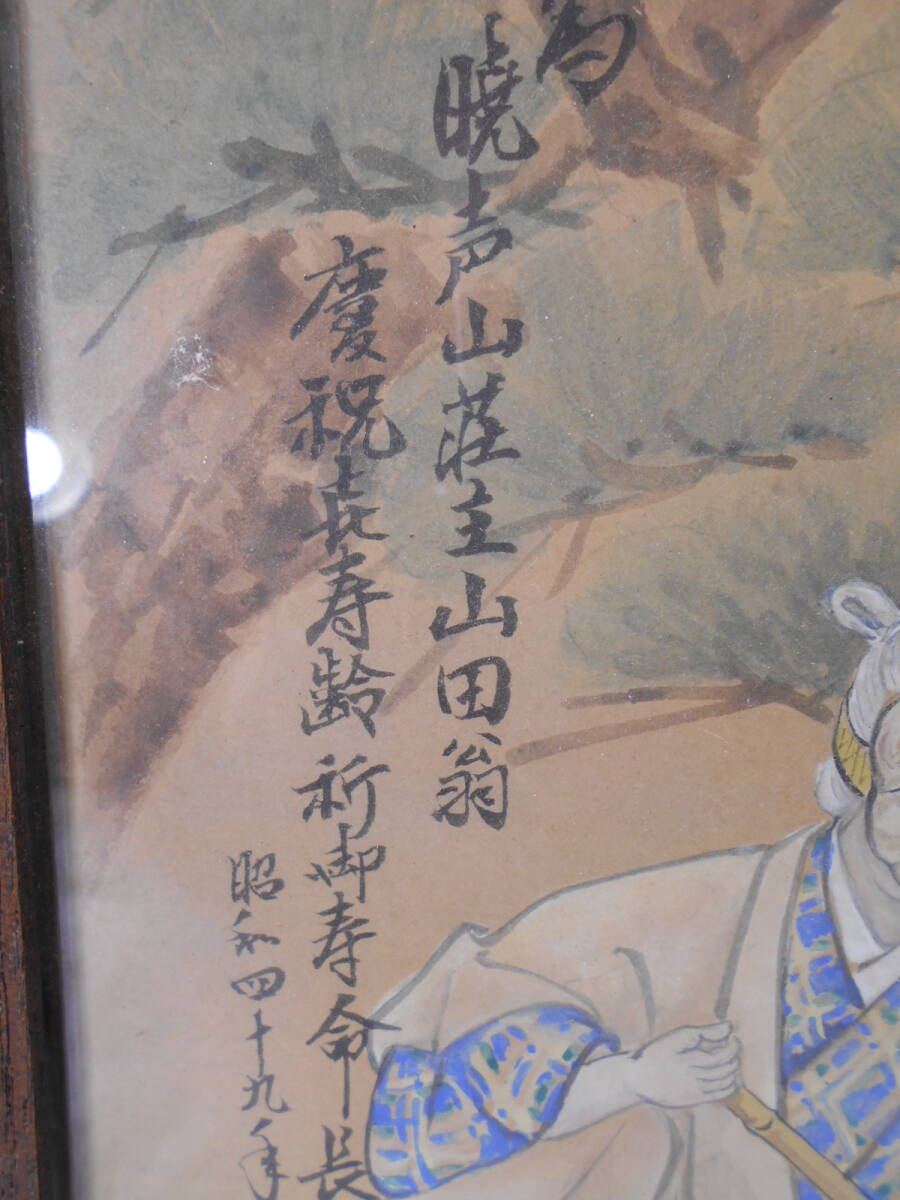 為
暁声山荘主山田翁
慶祝喜寿齢祈御寿命長
昭和四十九年